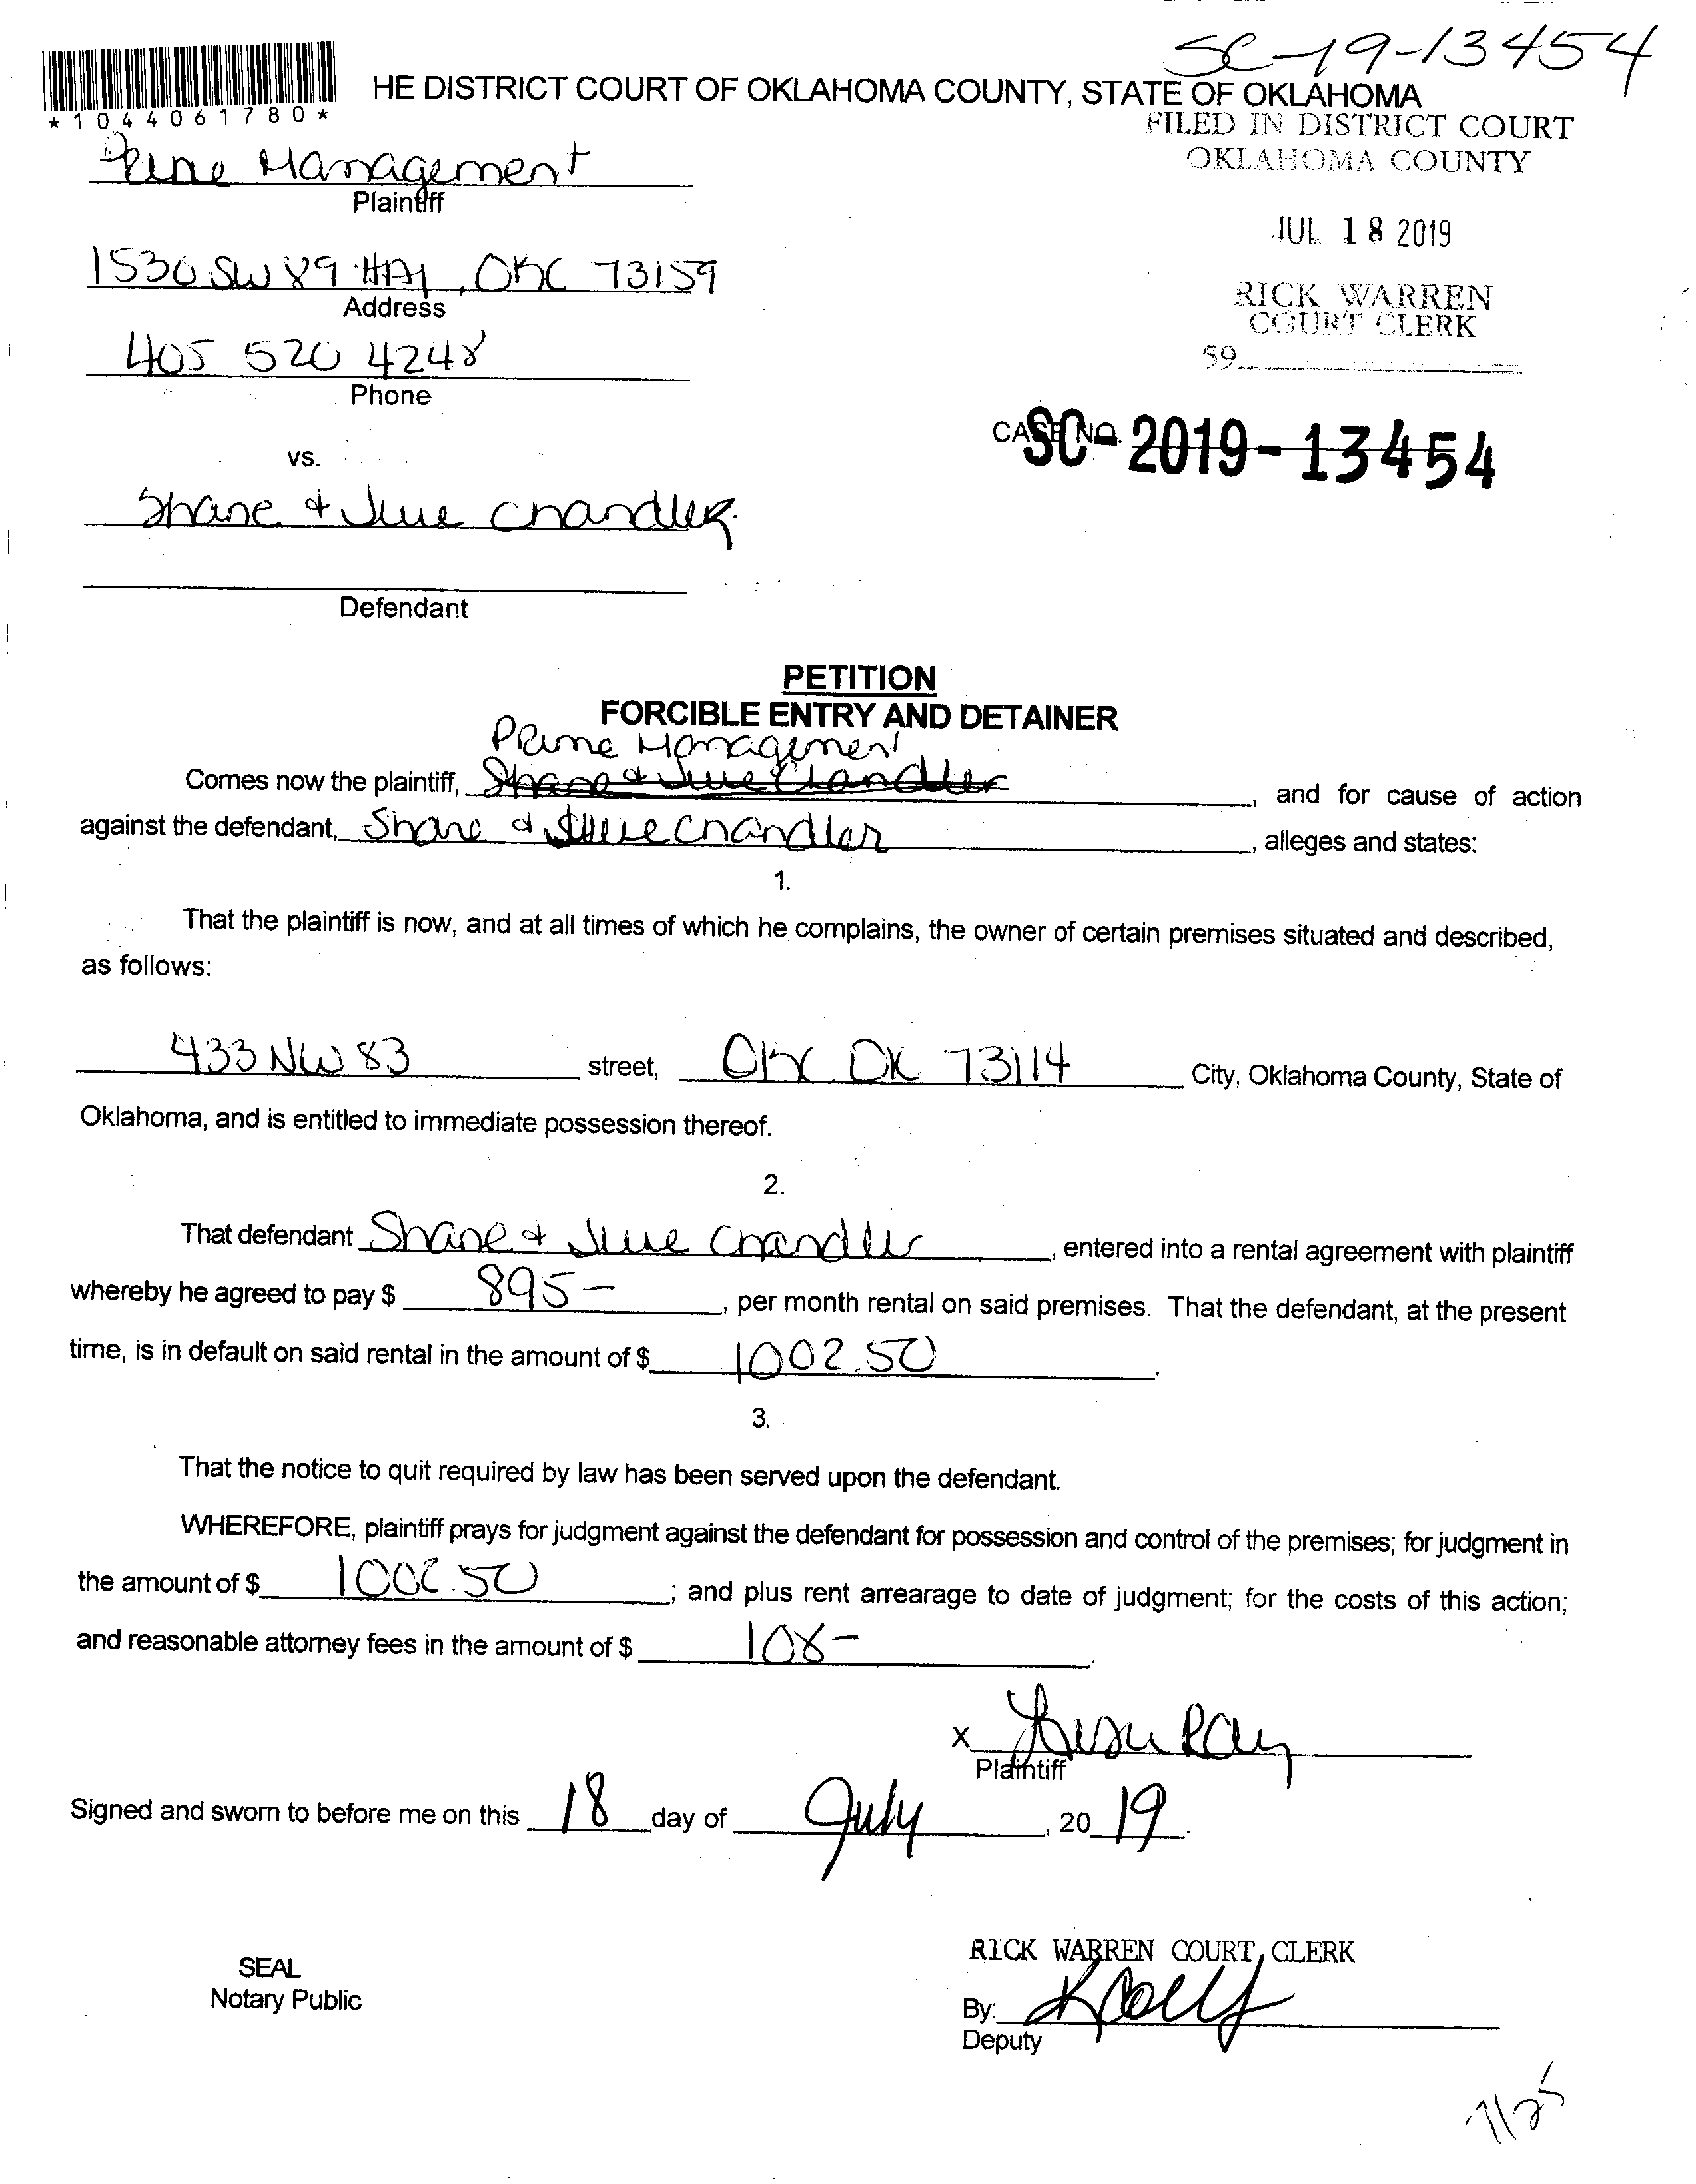 SC-19-13454
HE DISTRICT COURT OF OKLAHOMA COUNTY, STATE OF OKLAHOMA
*1044061780*
FILED IN DISTRICT COURT
OKLAHOMA COUNTY
Prime Management
Plaintiff
JUL 18 2019
1530 SW 89, OKC 73159
Address
RICK WARREN
COURT CLERK
405 520 4248
Phone
59
CASE NO.
SC-2019-13454
vs.
Shane & Chandler
Defendant
PETITION
FORCIBLE ENTRY AND DETAINER
Prime Management
Comes now the plaintiff, Shane & Chandler, and for cause of action
against the defendant, Shane & Chandler, alleges and states:
1.
That the plaintiff is now, and at all times of which he complains, the owner of certain premises situated and described,
as follows:
433 NW 83 street, OKC OK 73114 City, Oklahoma County, State of
Oklahoma, and is entitled to immediate possession thereof.
2.
That defendant Shane & Chandler, entered into a rental agreement with plaintiff
whereby he agreed to pay $ 895-, per month rental on said premises. That the defendant, at the present
time, is in default on said rental in the amount of $ 1002.50.
3.
That the notice to quit required by law has been served upon the defendant.
WHEREFORE, plaintiff prays for judgment against the defendant for possession and control of the premises; for judgment in
the amount of $ 1002.50; and plus rent arrearage to date of judgment; for the costs of this action;
and reasonable attorney fees in the amount of $ 108-.
X Ray
Plaintiff
Signed and sworn to before me on this 18 day of July, 2019.
RICK WARREN COURT CLERK
SEAL
Notary Public
By:
Deputy
7/25